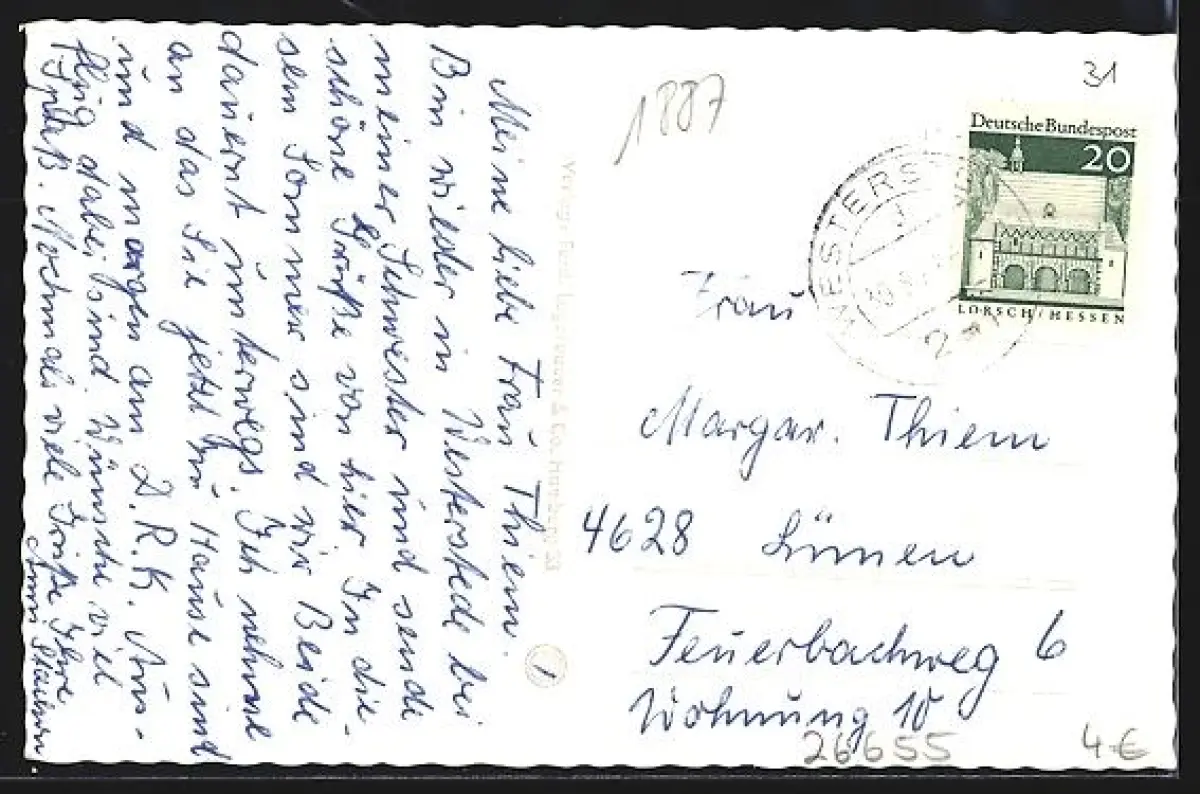 Meine liebe Frau Thiem.
Bin wieder in Westerstede bei
meiner Schwester und sende
schöne Grüße von hier. In die-
sem Sommer sind wir Beide
dauernt unterwegs. Ich nehme
an das Sie jetzt zu Hause sind
und morgen am D.R.K. Aus-
flug dabei sind. Wünsche viel
Spaß. Nochmals viele Grüße Ihre
Anni
1887
31
Deutsche Bundespost
20
LORSCH/HESSEN
WESTERSTEDE
2
Frau
Margar. Thiem
4628 Lünen
Feuerbachweg 6
Wohnung 10
26655
4-€
1
Verlag Ferd. & Co. Hamburg 23